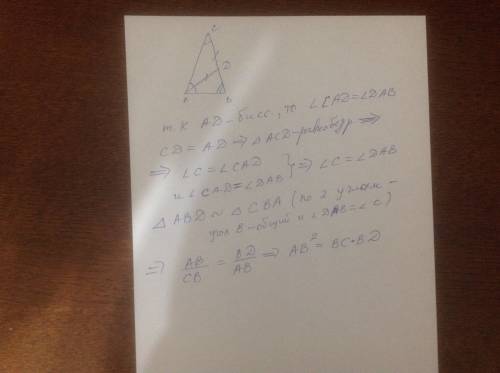 C
D
A B
т.к AD-бисс, то ∠CAD=∠DAB
CD = AD ⇒ △ACD-равнобедр ⇒
⇒ ∠C = ∠CAD } ⇒ ∠C = ∠DAB
и ∠CAD=∠DAB
△ABD ~ △CBA (по 2 углам-
угол B-общий и ∠DAB=∠C)
⇒ AB/CB = BD/AB ⇒ AB² = BC•BD